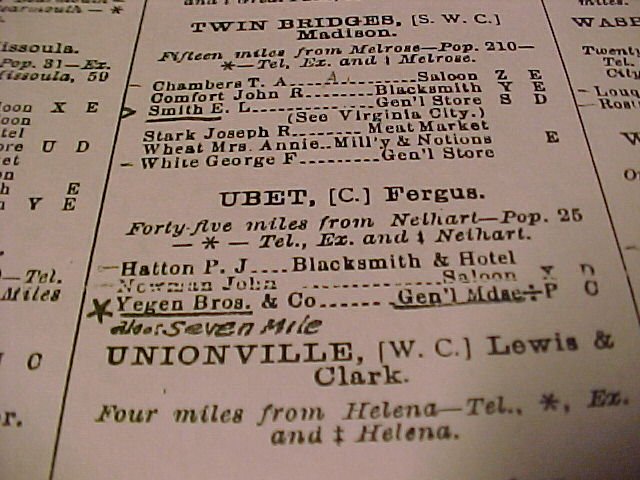 issoula.
Pop. 81—Ex.
issoula, 59
X E
U D
E
Y E
—Tel.
Miles
C
TWIN BRIDGES, [S. W. C.]
Madison.
Fifteen miles from Melrose—Pop. 210—
*—Tel., Ex. and ‡ Melrose.
Chambers T. A.........Saloon Z E
Comfort John R........Blacksmith Y E
> Smith E. L..............Gen'l Store S D
(See Virginia City.)
Stark Joseph R........Meat Market
Wheat Mrs. Annie..Mill'y & Notions E
White George F.........Gen'l Store
UBET, [C.] Fergus.
Forty-five miles from Neihart—Pop. 25
— * — Tel., Ex. and ‡ Neihart.
Hatton P. J....Blacksmith & Hotel
Newman John ..............Saloon Y D
* Yegen Bros. & Co.......Gen'l Mdse P C
also: SEVEN Mile
UNIONVILLE, [W. C.] Lewis &
Clark.
Four miles from Helena—Tel., *, Ex.
and ‡ Helena.
Twenty
Tel.
City